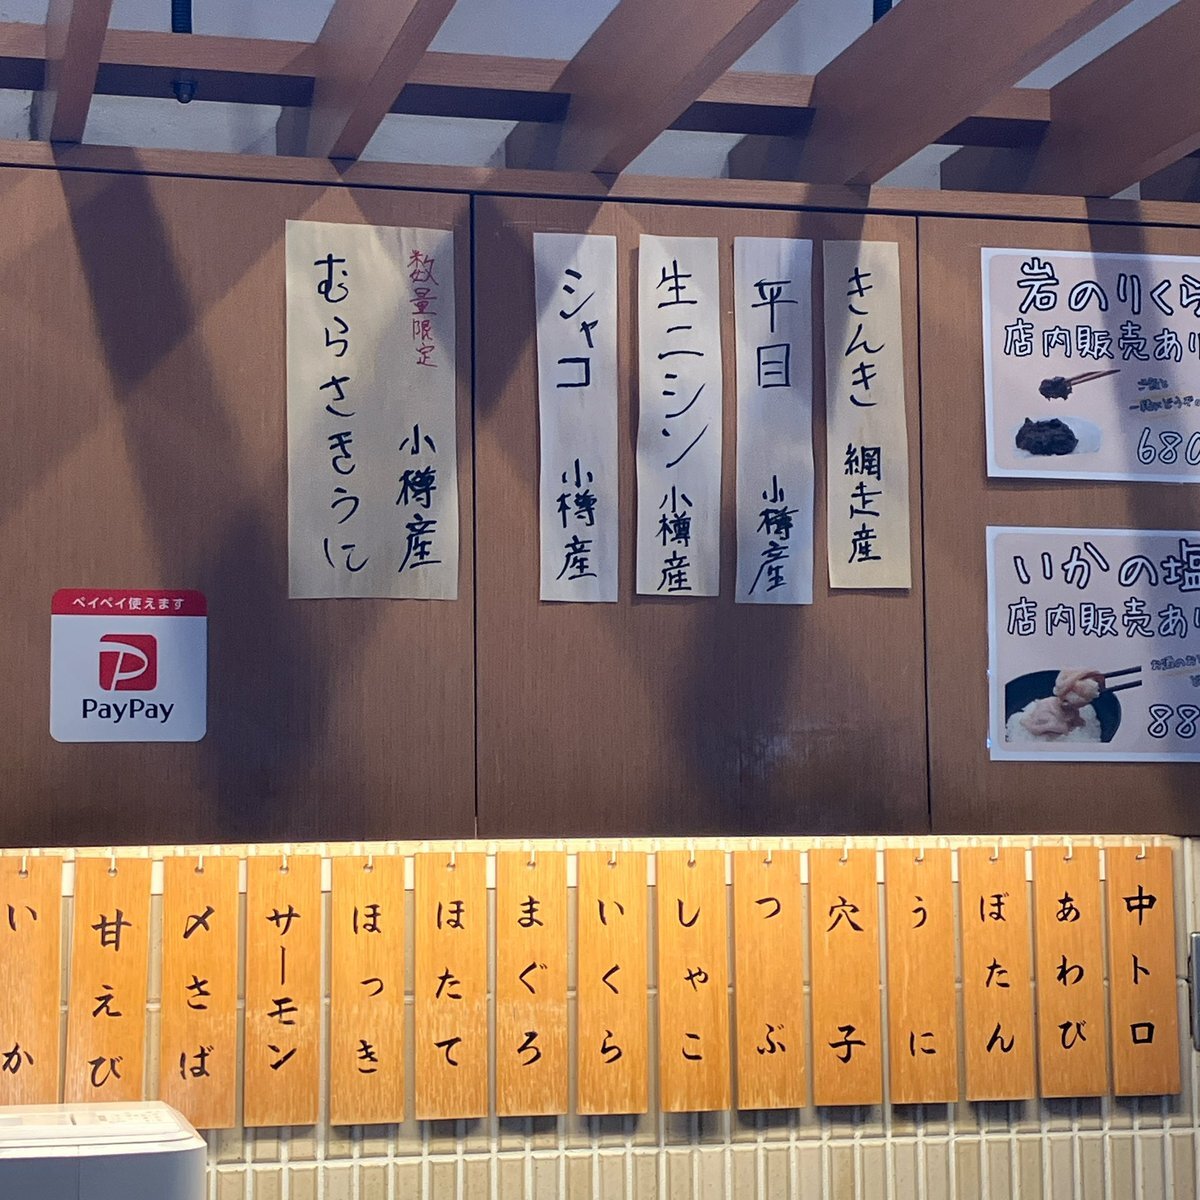 数量限定
小樽産
むらさきうに
シャコ 小樽産
生ニシン 小樽産
平目 小樽産
きんき 網走産
岩のりくら
店内販売あり
680
いかの塩
店内販売あり
88
ペイペイ使えます
PayPay
いか
甘えび
〆さば
サーモン
ほっき
ほたて
まぐろ
いくら
しゃこ
つぶ
穴子
うに
ぼたん
あわび
中トロ